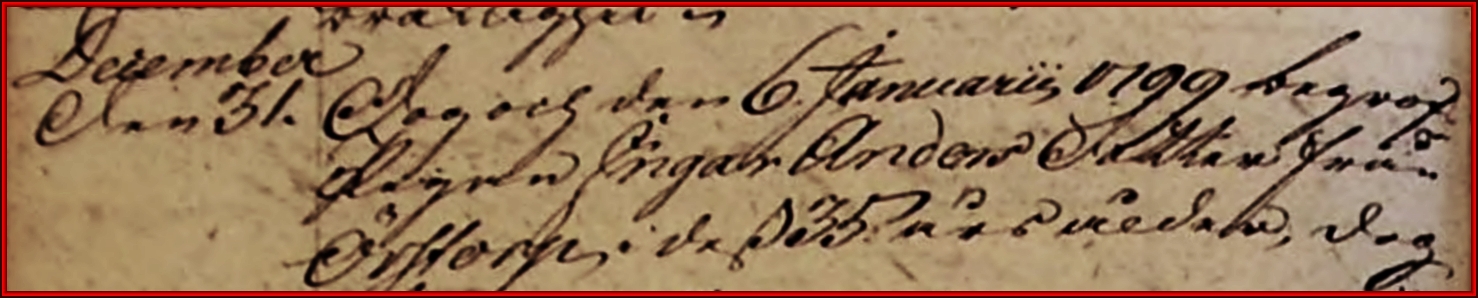 December
den 31. Dog och den 6. Januarii 1799 begrofs
Pigan Ingar Anders Dotter från
Örstorp, i deß 35. års ålder, dog